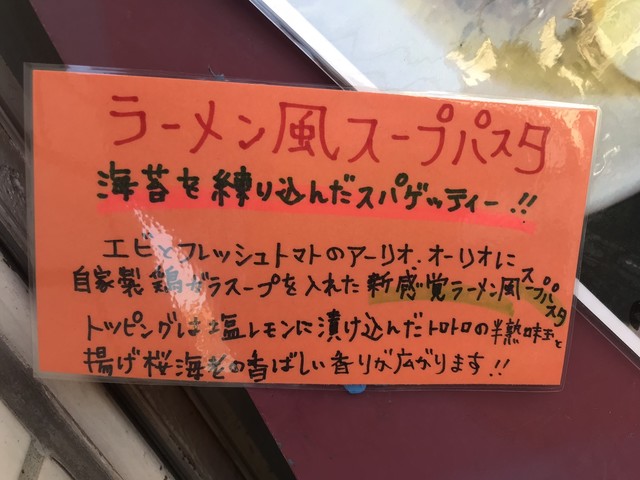 ラーメン風スープパスタ
海苔を練り込んだスパゲッティー!!
エビとフレッシュトマトのアーリオ.オーリオに
自家製鶏ガラスープを入れた新感覚ラーメン風スープパスタ
トッピングは塩レモンに漬け込んだトロトロの半熟味玉と
揚げ桜海老の香ばしい香りが広がります!!